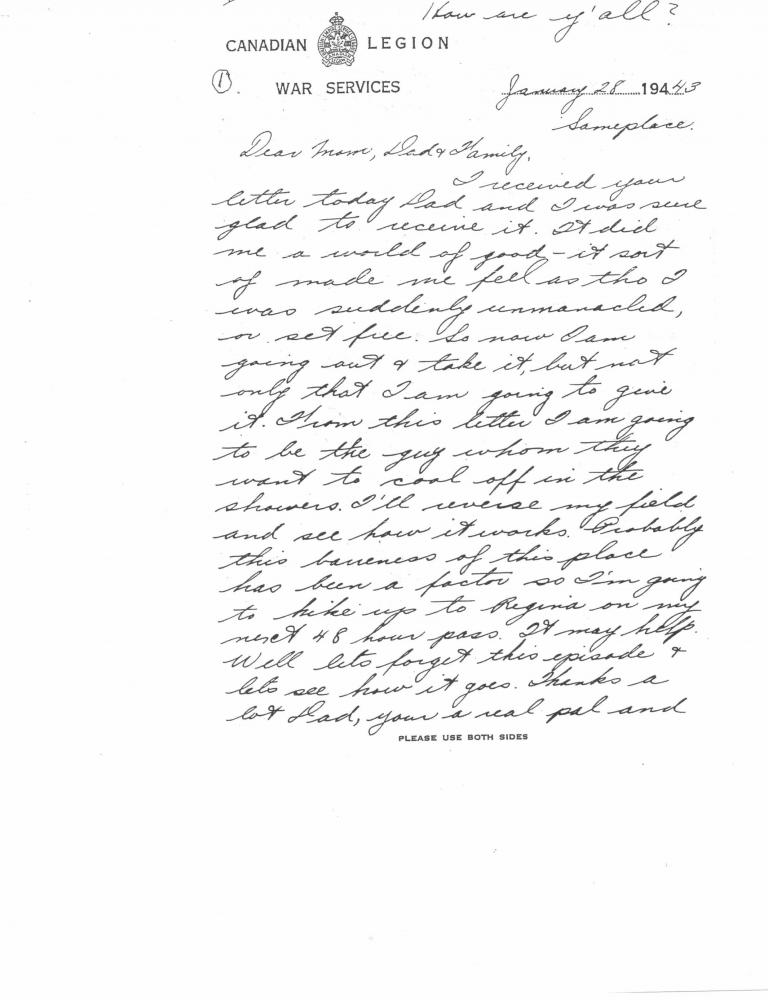 How are y'all?
CANADIAN LEGION
1. WAR SERVICES January 28 19443
Someplace.
Dear Mom, Dad & Family,
I received your
letter today Dad and I was sure
glad to receive it. It did
me a world of good - it sort
of made me feel as tho I
was suddenly unmanacled,
or set free. So now I am
going out & take it, but not
only that I am going to give
it. From this letter I am going
to be the guy whom they
want to cool off in the
showers. I'll reverse my field
and see how it works. Probably
this bareness of this place
has been a factor so I'm going
to hike up to Regina on my
next 48 hour pass. It may help.
Well lets forget this episode &
lets see how it goes. Thanks a
lot Dad, your a real pal and
PLEASE USE BOTH SIDES